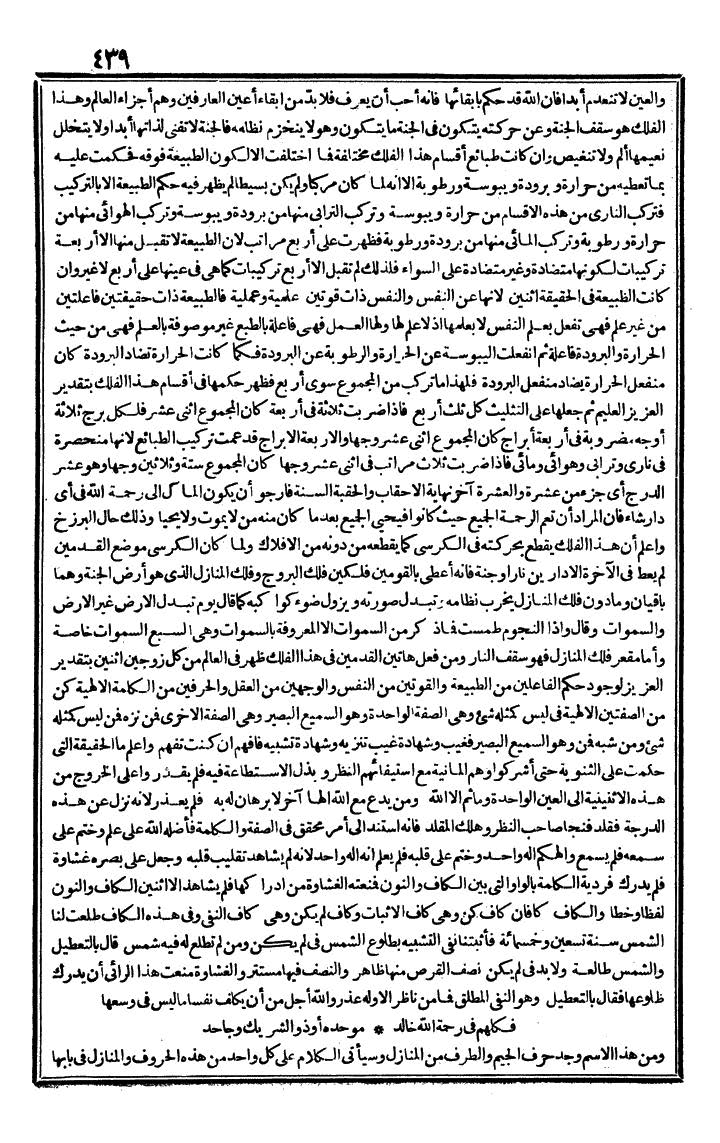 ٤٣٩
والعين لا تنعدم أبدا فان الله قد حكم بابقائها فانه أحب أن يعرف فلا بدّ من ابقاء أعين العارفين وهم أجزاء العالم وهذا
الفلك هو سقف الجنة وعن حركته يتكون فى الجنة ما يتكون وهو لا ينخرم نظامه فالجنة لا تفنى لذاتها أبدا ولا يتخلل
نعيمها ألم ولا تنغيص وان كانت طبائع أقسام هذا الفلك مختلفة فما اختلفت الا لكون الطبيعة فوقه فحكمت عليه
بما تعطيه من حرارة وبرودة ويبوسة ورطوبة الا انه لما كان مركبا ولم يكن بسيطا لم يظهر فيه حكم الطبيعة الا بالتركيب
فتركب النارى من هذه الاقسام من حرارة ويبوسة وتركب الترابى منها من برودة ويبوسة وتركب الهوائى منها من
حرارة ورطوبة وتركب المائى منها من برودة ورطوبة فظهرت على أربع مراتب لان الطبيعة لا تقبل منها الا أربعة
تركيبات لكونها متضادة وغير متضادة على السواء فلذلك لم تقبل الا أربع تركيبات كما هى فى عينها على أربع لا غير وان
كانت الطبيعة فى الحقيقة اثنين لانها عن النفس والنفس ذات قوتين علمية وعملية فالطبيعة ذات حقيقتين فاعلتين
من غير علم فهى تفعل بعلم النفس لا بعلمها اذ لا علم لها ولها العمل فهى فاعلة بالطبع غير موصوفة بالعلم فهى من حيث
الحرارة والبرودة فاعلة ثم انفعلت اليبوسة عن الحرارة والرطوبة عن البرودة فكما كانت الحرارة تضاد البرودة كان
منفعل الحرارة يضاد منفعل البرودة فلهذا ما تركب من المجموع سوى أربع فظهر حكمها فى أقسام هذا الفلك بتقدير
العزيز العليم ثم جعلها على التثليث كل ثلث أربع فاذا ضربت ثلاثة فى أربعة كان المجموع اثنى عشر فلكل برج ثلاثة
أوجه مضروبة فى أربعة أبراج كان المجموع اثنى عشر وجها والاربعة الابراج قد عمت تركيب الطبائع لانها منحصرة
فى نارى وترابى وهوائى ومائى فاذا ضربت ثلاث مراتب فى اثنى عشر وجها كان المجموع ستة وثلاثين وجها وهو عشر
الدرج أى جزء من عشرة والعشرة آخر نهاية الاحقاب والحقبة السنة فأرجو أن يكون المآل الى رحمة الله فى أى
دار شاء فان المراد أن تعم الرحمة الجميع حيث كانوا فيحيى الجميع بعد ما كان منه من لا يموت ولا يحيا وذلك حال البرزخ
واعلم أن هذا الفلك يقطع بحركته فى الكرسى كما يقطعه من دونه من الافلاك ولما كان الكرسى موضع القدمين
لم يعط فى الآخرة الا دارين نارا وجنة فانه أعطى بالقومين فلكين فلك البروج وفلك المنازل الذى هو أرض الجنة وهما
باقيان وما دون فلك المنازل يخرب نظامه وتبدل صورته ويزول ضوء كواكبه كما قال يوم تبدل الارض غير الارض
والسموات وقال واذا النجوم طمست فما ذكر من السموات الا المعروفة بالسموات وهى السبع السموات خاصة
وأما مقعر فلك المنازل فهو سقف النار ومن فعل هاتين القدمين فى هذا الفلك ظهر فى العالم من كل زوجين اثنين بتقدير
العزيز لوجود حكم الفاعلين من الطبيعة والقوتين من النفس والوجهين من العقل والحرفين من الكلمة الالهية كن
من الصفتين الالهية فى ليس كمثله شئ وهى الصفة الواحدة وهو السميع البصير وهى الصفة الاخرى فمن نزه فمن ليس كمثله
شئ ومن شبه فمن وهو السميع البصير فغيب وشهادة غيب تنزيه وشهادة تشبيه فافهم ان كنت تفهم واعلم ما الحقيقة التى
حكمت على الثنوية حتى أشركوا وهم المانية مع استيفائهم النظر وبذل الاستطاعة فيه فلم يقدروا على الخروج من
هذه الاثنينية الى العين الواحدة وما ثم الا الله ومن يدع مع الله الها آخر لا برهان له به فلم يعذر لانه نزل عن هذه
الدرجة فقلد فنجا صاحب النظر وهلك المقلد فانه استند الى أمر محقق فى الصفة والكلمة فأضله الله على علم وختم على
سمعه فلم يسمع والهكم اله واحد وختم على قلبه فلم يعلم انه اله واحد لانه لم يشاهد تقليب قلبه وجعل على بصره غشاوة
فلم يدرك فردية الكلمة بالواو التى بين الكاف والنون فمنعته الغشاوة من ادراكها فلم يشاهد الا اثنين الكاف والنون
لفظا وخطا والكاف كافان كاف كن وهى كاف الاثبات وكاف لم يكن وهى كاف النفى وفى هذه الكاف طلعت لنا
الشمس سنة تسعين وخمسمائة فأثبتنا نفى التشبيه بطلوع الشمس فى لم يكن ومن لم تطلع له فيه شمس قال بالتعطيل
والشمس طالعة ولا بد فى لم يكن نصف القرص منها ظاهر والنصف فيها مستتر والغشاوة منعت هذا الرائى أن يدرك
طلوعها فقال بالتعطيل وهو النفى المطلق فما من ناظر الا وله عذر والله أجل من أن يكلف نفسا ما ليس فى وسعها
فكلهم فى رحمة الله خالد * موحده أو ذو الشريك وجاحد
ومن هذا الاسم وجد حرف الجيم والطرف من المنازل وسيأتى الكلام على كل واحد من هذه الحروف والمنازل فى بابها